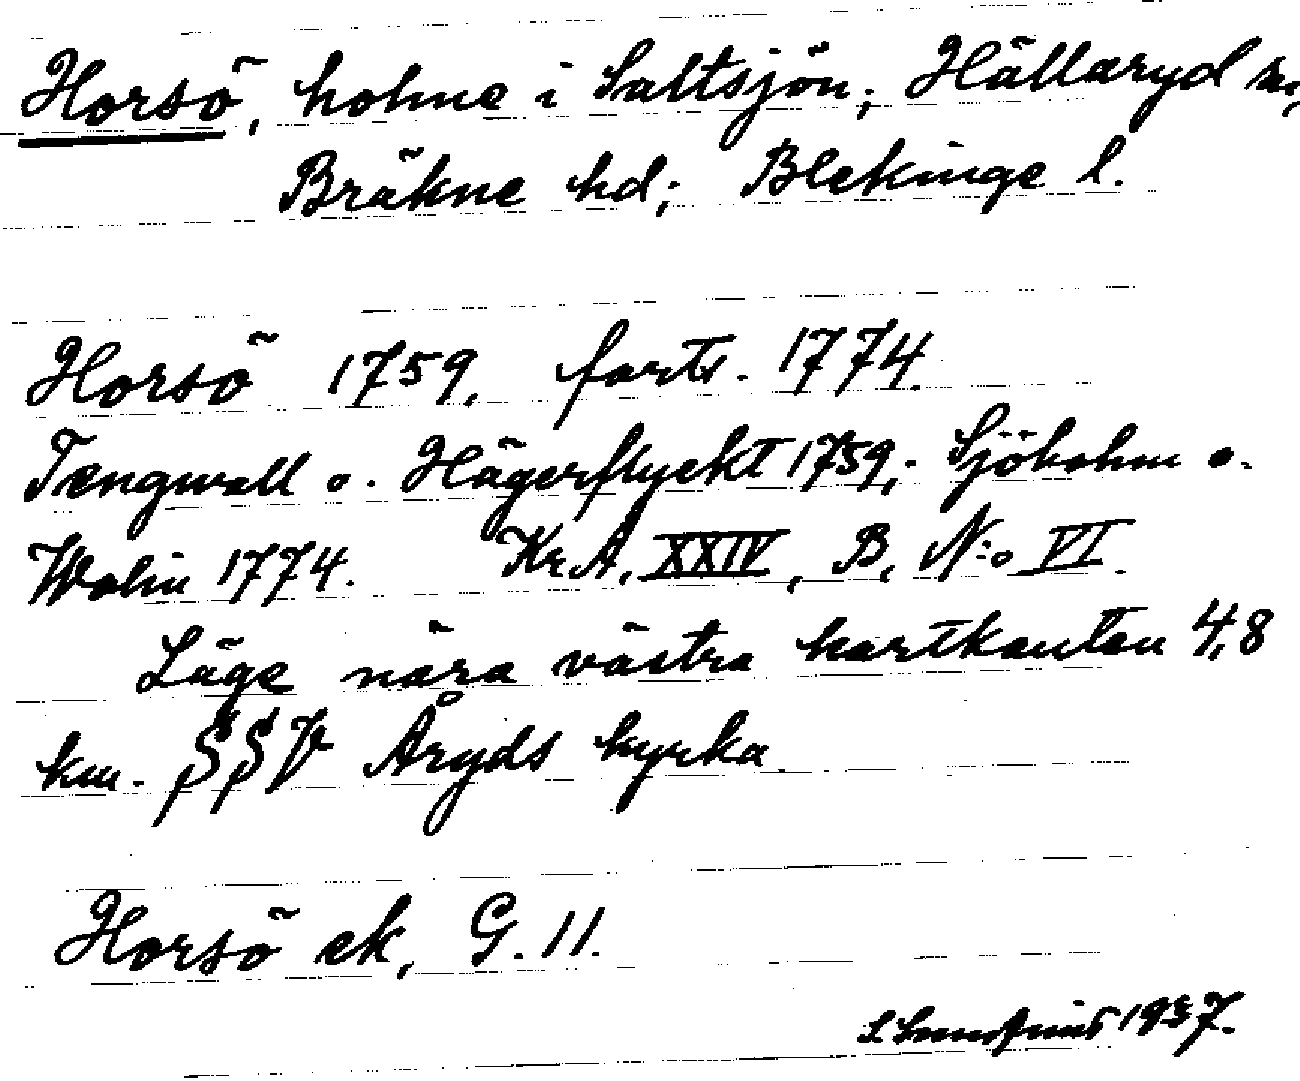 Horsö, holme i Saltsjön; Hällaryd sn,
Bräkne hd; Blekinge l.
Horsö 1759, forts. 1774.
Tengwall o. Hägerflyckt 1759,. Sjöholm o.
Wolin 1774. Kr.A. XXIV, B, N:o VI.
Läge nära västra kartkanten 4,8
km. SSV Åryds kyrka.
Horsö ek, G. 11.
1937.